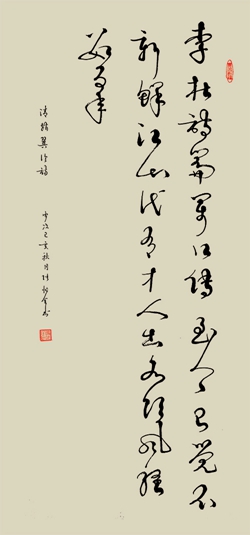 李杜詩篇萬口傳至今已覺不
新鮮江山代有才人出各領風騷
數百年
清趙翼詩
歲次己亥秋月書